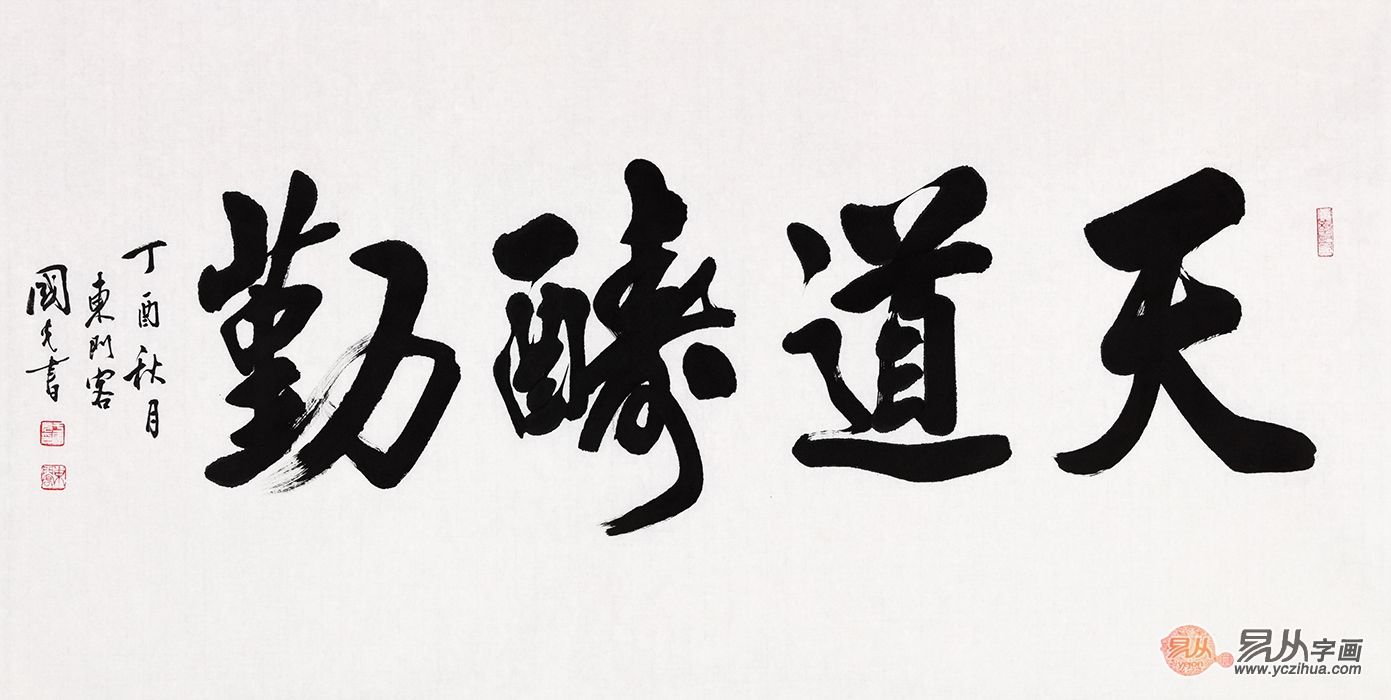 天道酬勤
丁酉秋月
東門客
國光書
易从字画
yejon
www.yczihua.com